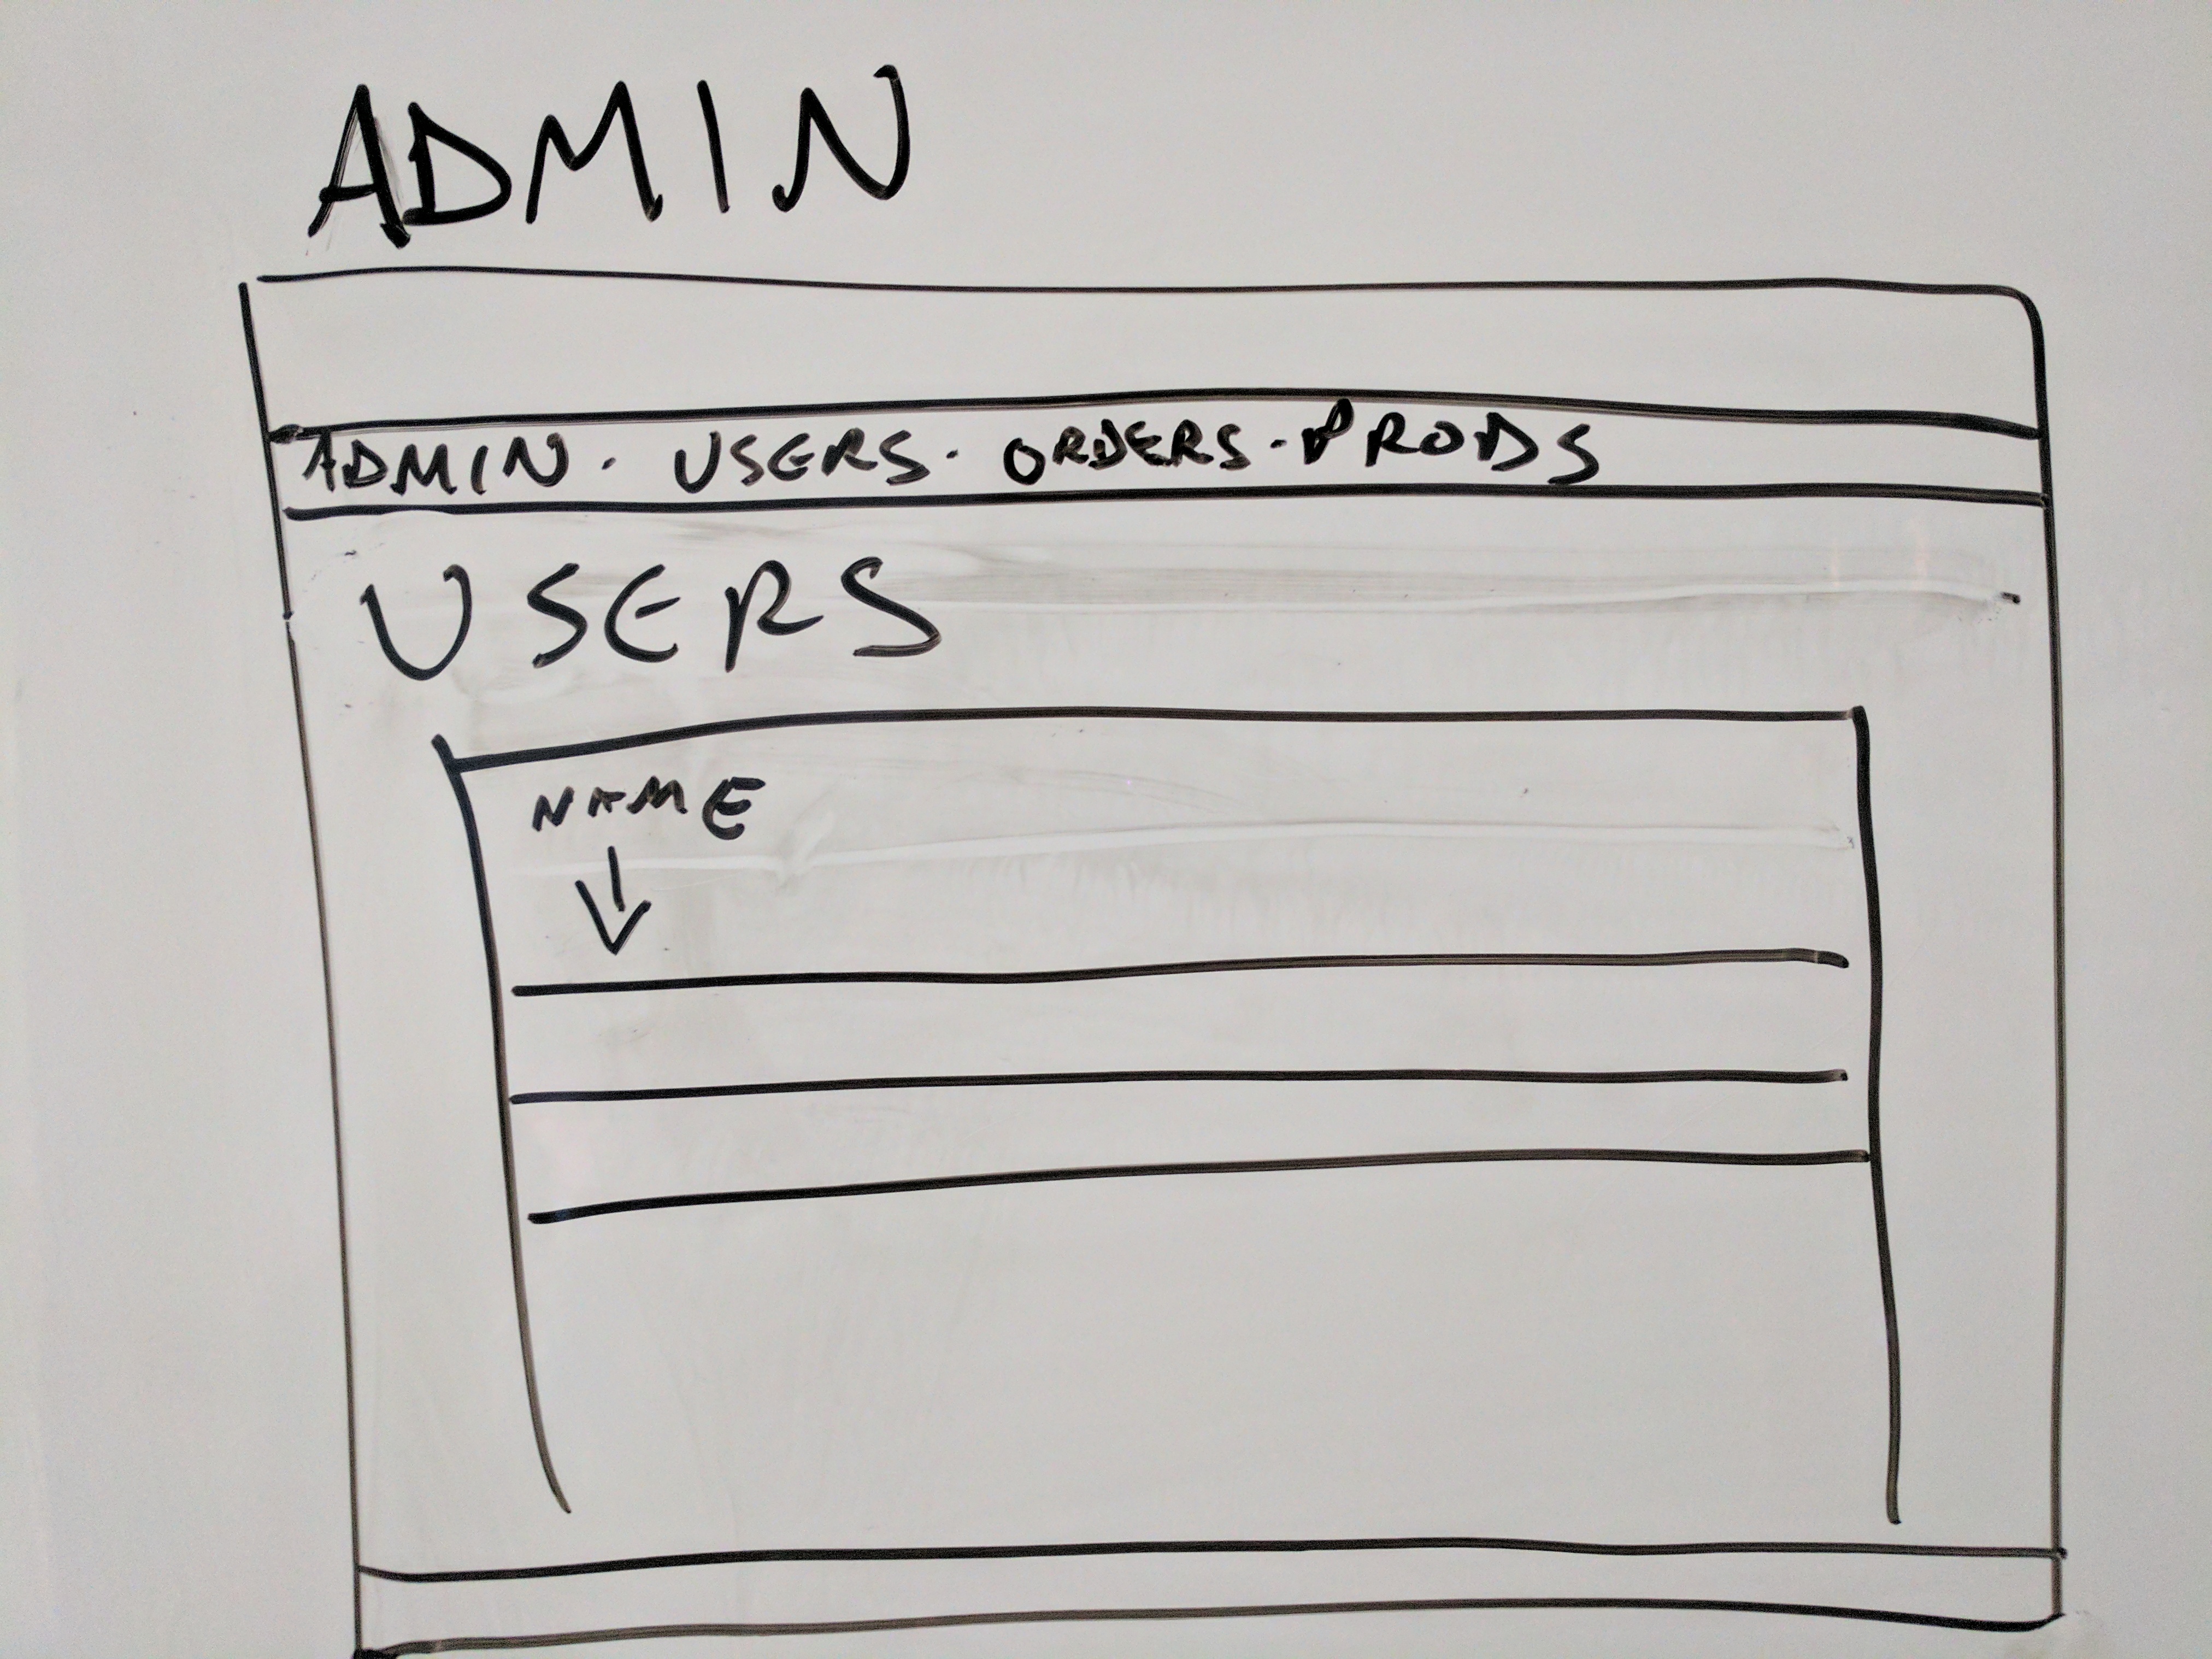 ADMIN
ADMIN · USERS · ORDERS · PRODS
USERS
NAME